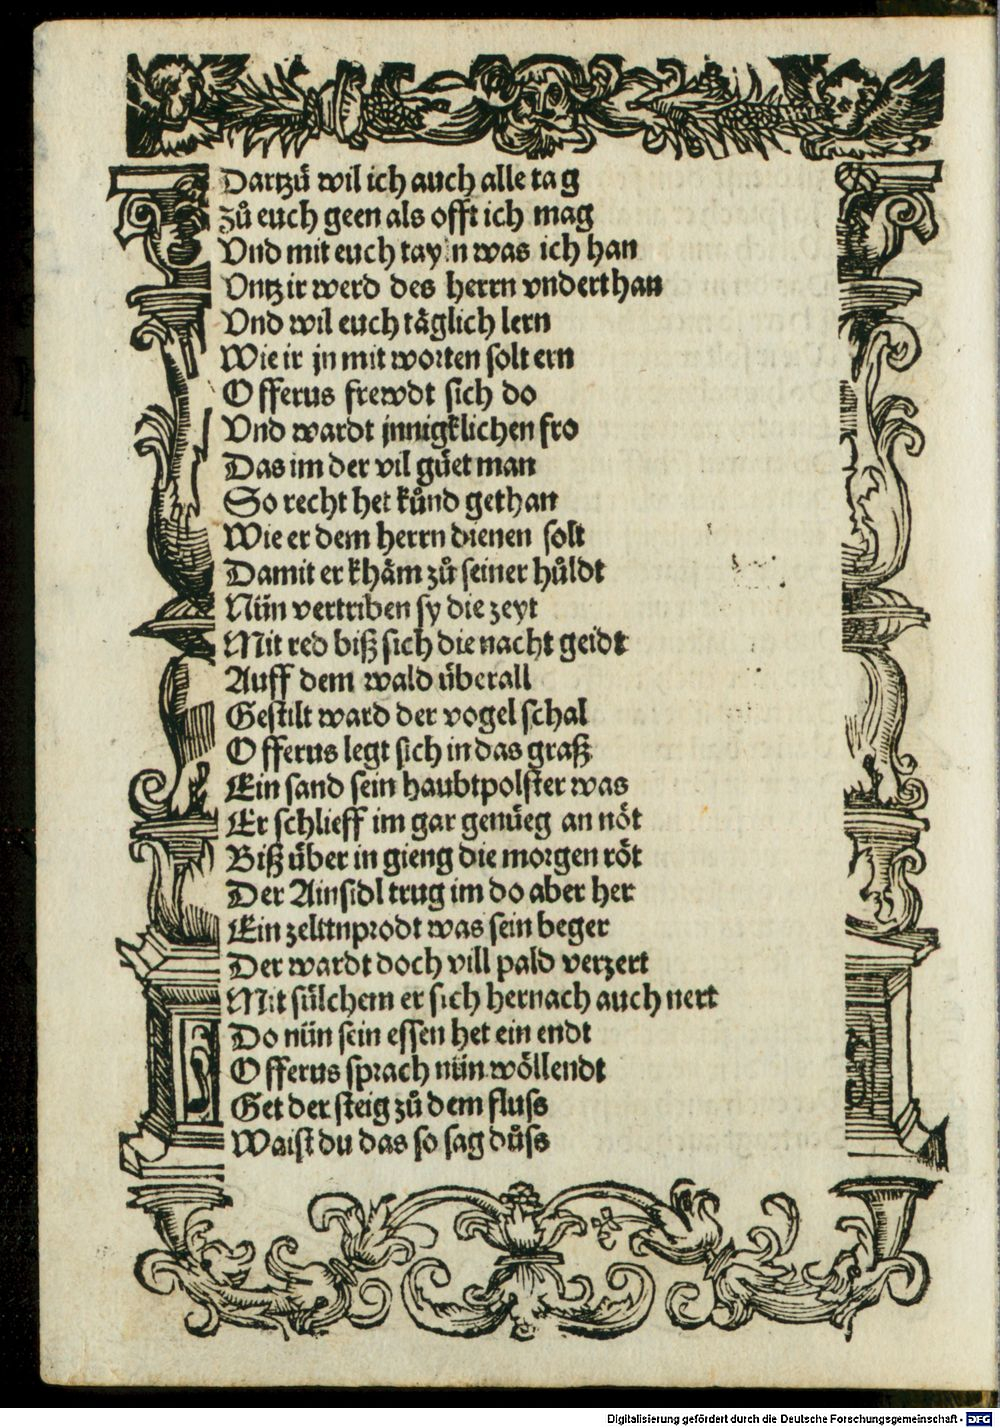 Dartzů wil ich auch alle tag
zů euch geen als offt ich mag
Vnd mit euch tayln was ich han
Vntz ir werd des herrn vnderthan
Vnd wil euch täglich lern
Wie ir jn mit worten solt ern
Offerus frewdt sich do
Vnd wardt jnnigklichen fro
Das im der vil güet man
So recht het kůnd gethan
Wie er dem herrn dienen solt
Damit er khäm zů seiner hůldt
Nün vertriben sy die zeyt
Mit red biß sich die nacht geidt
Auff dem wald überall
Gestilt ward der vogel schal
Offerus legt sich in das graß
Ein sand sein haubtpolster was
Er schlieff im gar genüeg an nöt
Biß über in gieng die morgen röt
Der Ainsidl trug im do aber her
Ein zelttnprodt was sein beger
Der wardt doch vill pald verzert
Mit sülchem er sich hernach auch nert
Do nün sein essen het ein endt
Offerus sprach nün wöllendt
Get der steig zů dem fluss
Waist du das so sag důss
Digitalisierung gefördert durch die Deutsche Forschungsgemeinschaft - DFG